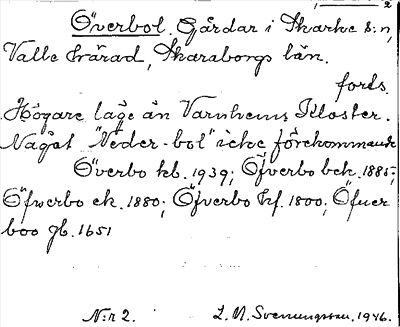 Överbol. Gårdar i Skarke s:n,
Valle härad, Skaraborgs län.
fords.
Högare läge än Varnhems Kloster.
Något "Neder-bol" icke förekommande
Överbo kb. 1939; Öfverbo bek. 1885;
Öfwerbo ek. 1880; Öfverbo hf. 1800; Öfuer
boo jb. 1651
N:r 2. L. M. Svenungsson. 1946.